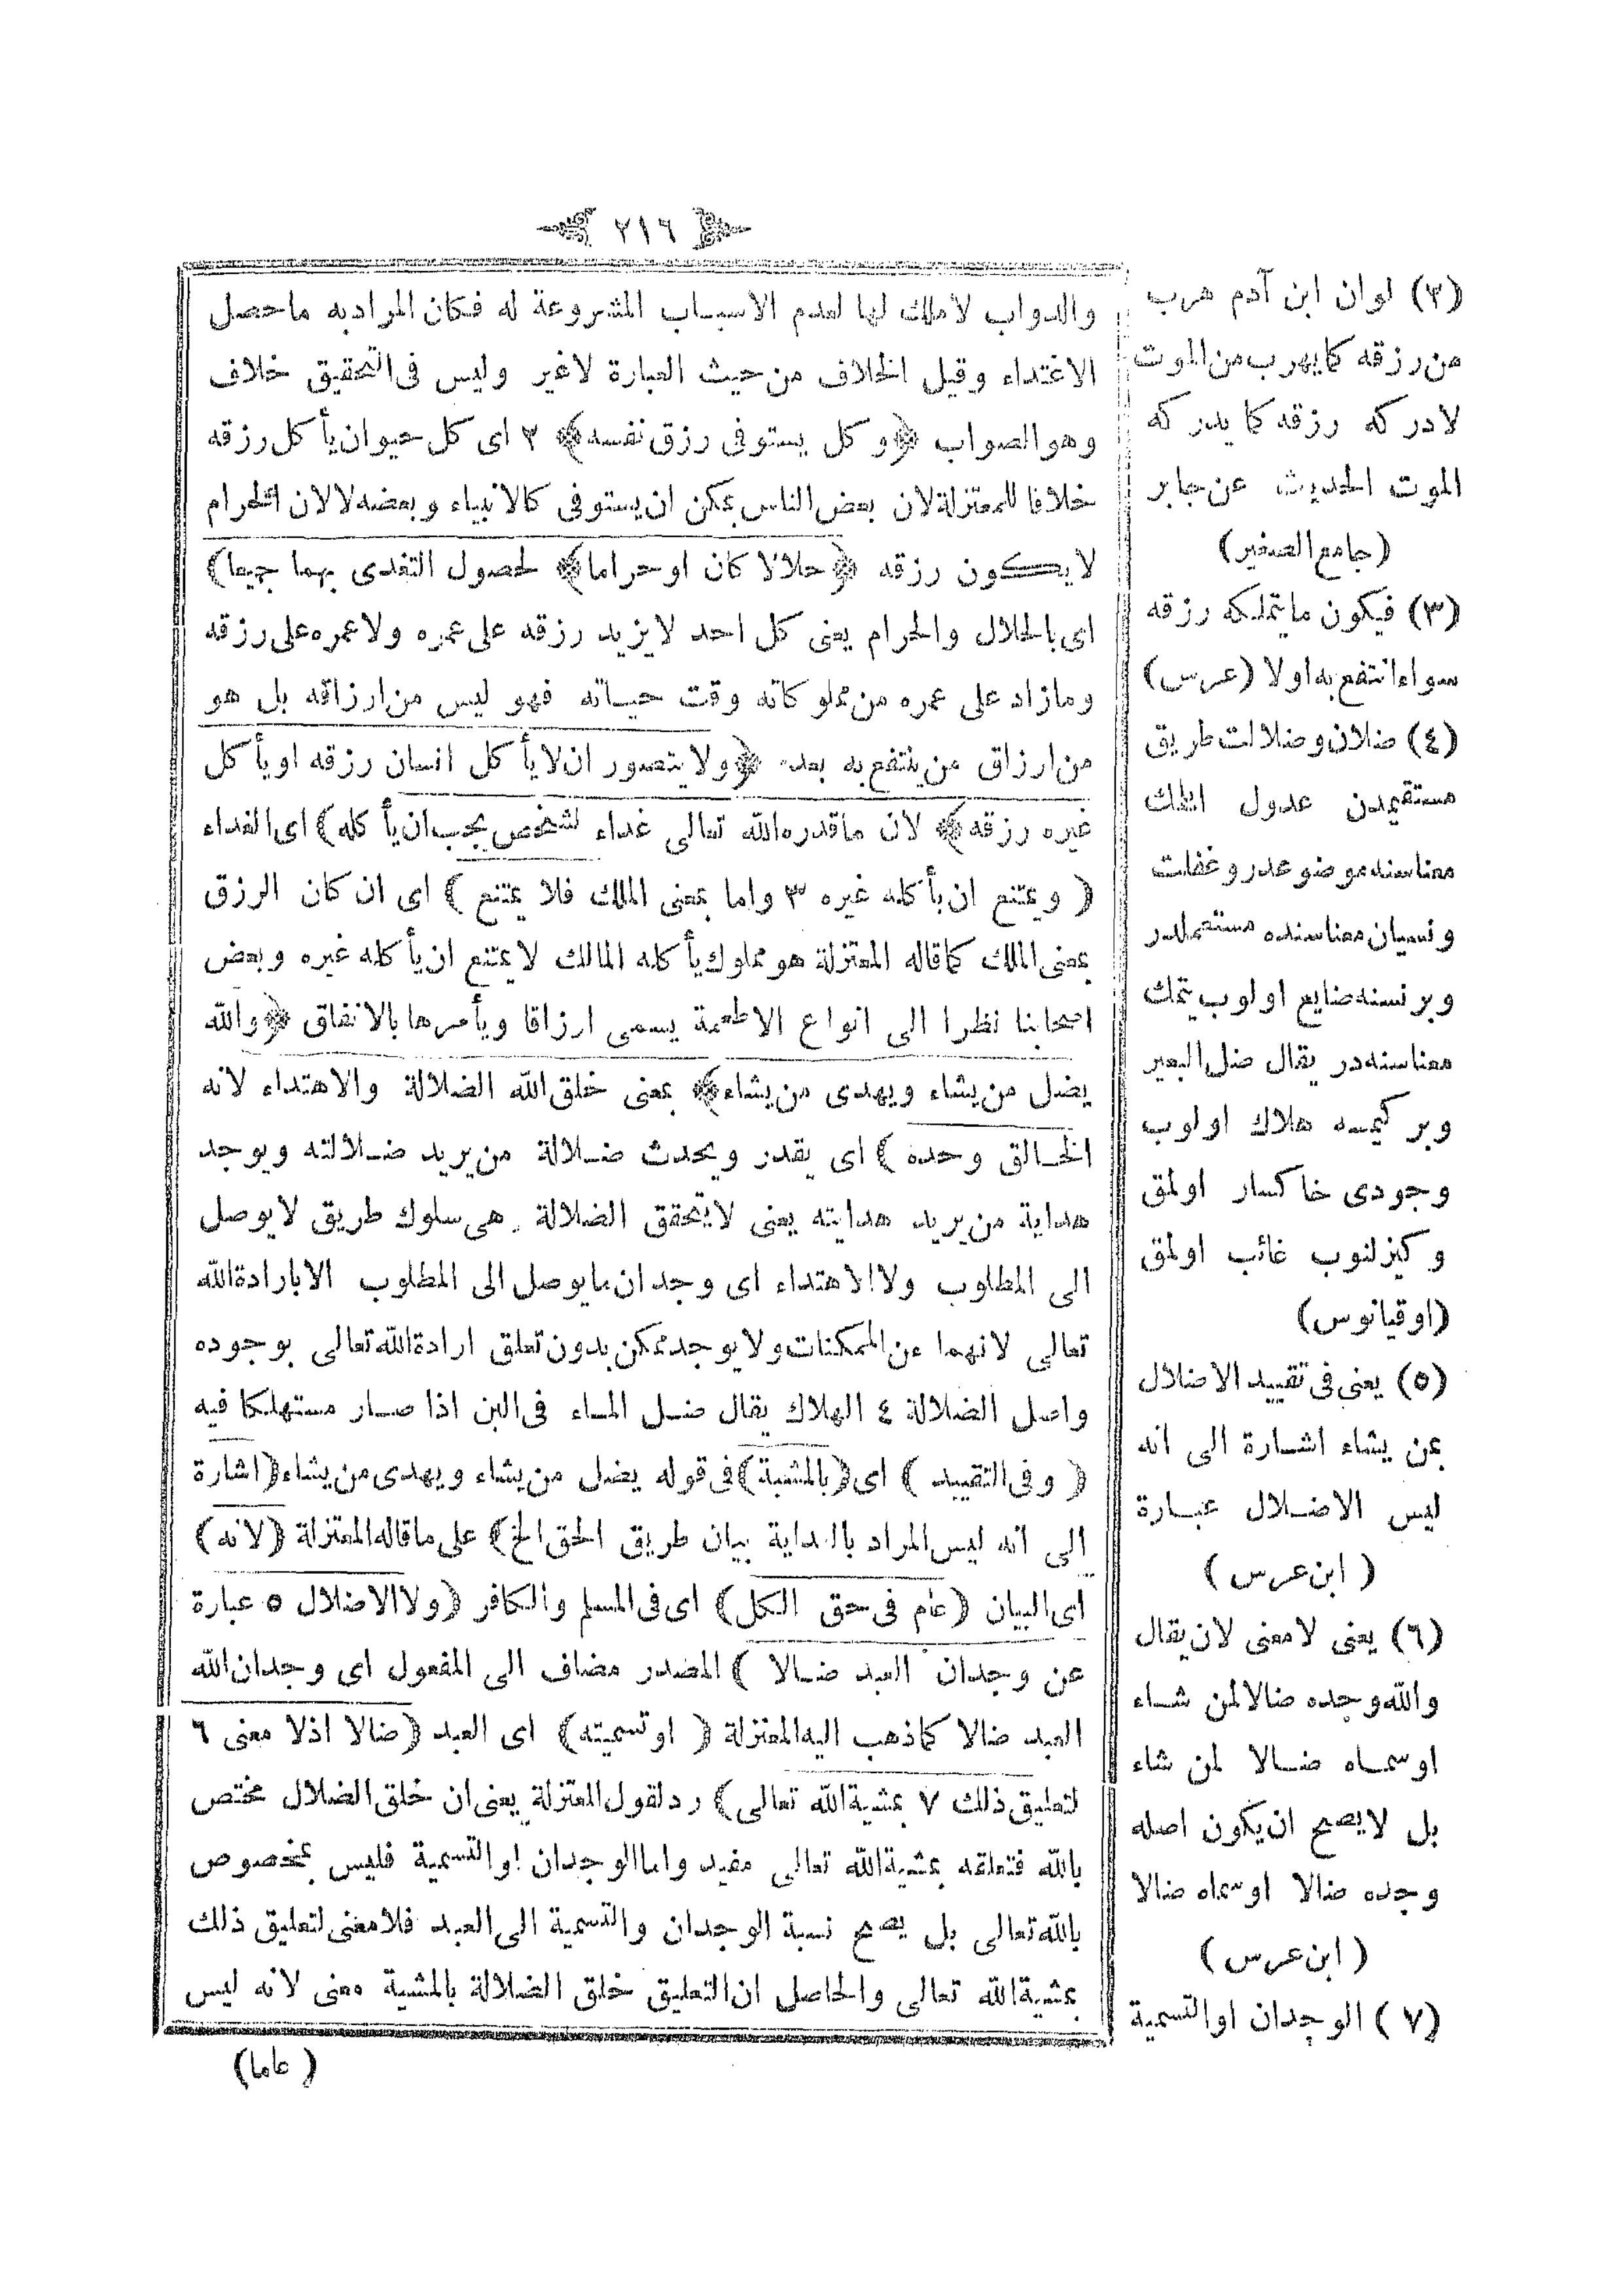 ﴿ ٢١٦ ﴾
والدواب لاملك لها لعدم الاسباب المشروعة له فكان المرادبه ماحصل
الاغتداء وقيل الخلاف من حيث العبارة لاغير وليس فى التحقيق خلاف
وهو الصواب ﴿وكل يستوفى رزق نفسه﴾ ٢ اى كل حيوان يأكل رزقه
خلافا للمعتزلة لان بعض الناس يمكن ان يستوفى كالانبياء وبعضه لا لان الحرام
لايكون رزقه ﴿حلالا كان اوحراما﴾ لحصول التغدى بهما جميعا)
اى بالحلال والحرام يعنى كل احد لايزيد رزقه على عمره ولاعمره على رزقه
ومازاد على عمره من مملوكاته وقت حياته فهو ليس من ارزاقه بل هو
من ارزاق من ينتفع به بعده ﴿ولايتصور ان لايأكل انسان رزقه اويأكل
غيره رزقه﴾ لان ماقدره الله تعالى غداء لشخص يجب ان يأكله) اى الغداء
( ويمتنع ان يأكله غيره ٣ واما بمعنى الملك فلا يمتنع ) اى ان كان الرزق
بمعنى الملك كماقاله المعتزلة هو مملوك يأكله المالك لايمتنع ان يأكله غيره وبعض
اصحابنا نظرا الى انواع الاطعمة يسمى ارزاقا ويأمرها بالانفاق ﴿والله
يضل من يشاء ويهدى من يشاء﴾ بمعنى خلق الله الضلالة والاهتداء لانه
الخالق وحده ) اى يقدر ويحدث ضلالة من يريد ضلالته ويوجد
هداية من يريد هدايته يعنى لايتحقق الضلالة . هى سلوك طريق لايوصل
الى المطلوب ولاالاهتداء اى وجدان مايوصل الى المطلوب الابارادة الله
تعالى لانهما من الممكنات ولايوجد ممكن بدون تعلق ارادة الله تعالى بوجوده
واصل الضلالة ٤ الهلاك يقال ضل الماء فى البن اذا صار مستهلكا فيه
( وفى التقييد ) اى (بالمشية) فى قوله يضل من يشاء ويهدى من يشاء (اشارة
الى انه ليس المراد بالهداية بيان طريق الحق الخ) على ماقاله المعتزلة (لانه)
اى البيان (عام فى حق الكل) اى فى المسلم والكافر (ولاالاضلال ٥ عبارة
عن وجدان العبد ضالا ) المصدر مضاف الى المفعول اى وجدان الله
العبد ضالا كماذهب اليه المعتزلة ( اوتسميته) اى العبد (ضالا اذلا معنى ٦
لتعليق ذلك ٧ بمشية الله تعالى) رد لقول المعتزلة يعنى ان خلق الضلال مختص
بالله فتعلقه بمشية الله تعالى مفيد واماالوجدان اوالتسمية فليس بمخصوص
بالله تعالى بل يصح نسبة الوجدان والتسمية الى العبد فلامعنى لتعليق ذلك
بمشية الله تعالى والحاصل ان التعليق خلق الضلالة بالمشية معنى لانه ليس
( عاما)
(٢) لوان ابن آدم هرب
من رزقه كمايهرب من الموت
لادركه رزقه كما يدركه
الموت الحديث عن جابر
(جامع الصغير)
(٣) فيكون مايتملكه رزقه
سواء انتفع به اولا (عرس)
(٤) ضلان وضلالت طريق
مستقيمدن عدول ايتمك
معناسنه موضوعدر وغفلت
ونسيان معناسنده مستعملدر
وبر نسنه ضايع اولوب يتمك
معناسنه در يقال ضل البعير
وبر كيمسه هلاك اولوب
وجودى خاكسار اولمق
وكيزلنوب غائب اولمق
(اوقيانوس)
(٥) يعنى فى تقييد الاضلال
بمن يشاء اشارة الى انه
ليس الاضلال عبارة
( ابن عرس )
(٦) يعنى لامعنى لان يقال
والله وجده ضالا لمن شاء
اوسماه ضالا لمن شاء
بل لايصح ان يكون اصله
وجده ضالا اوسماه ضالا
( ابن عرس )
(٧ ) الوجدان اوالتسمية